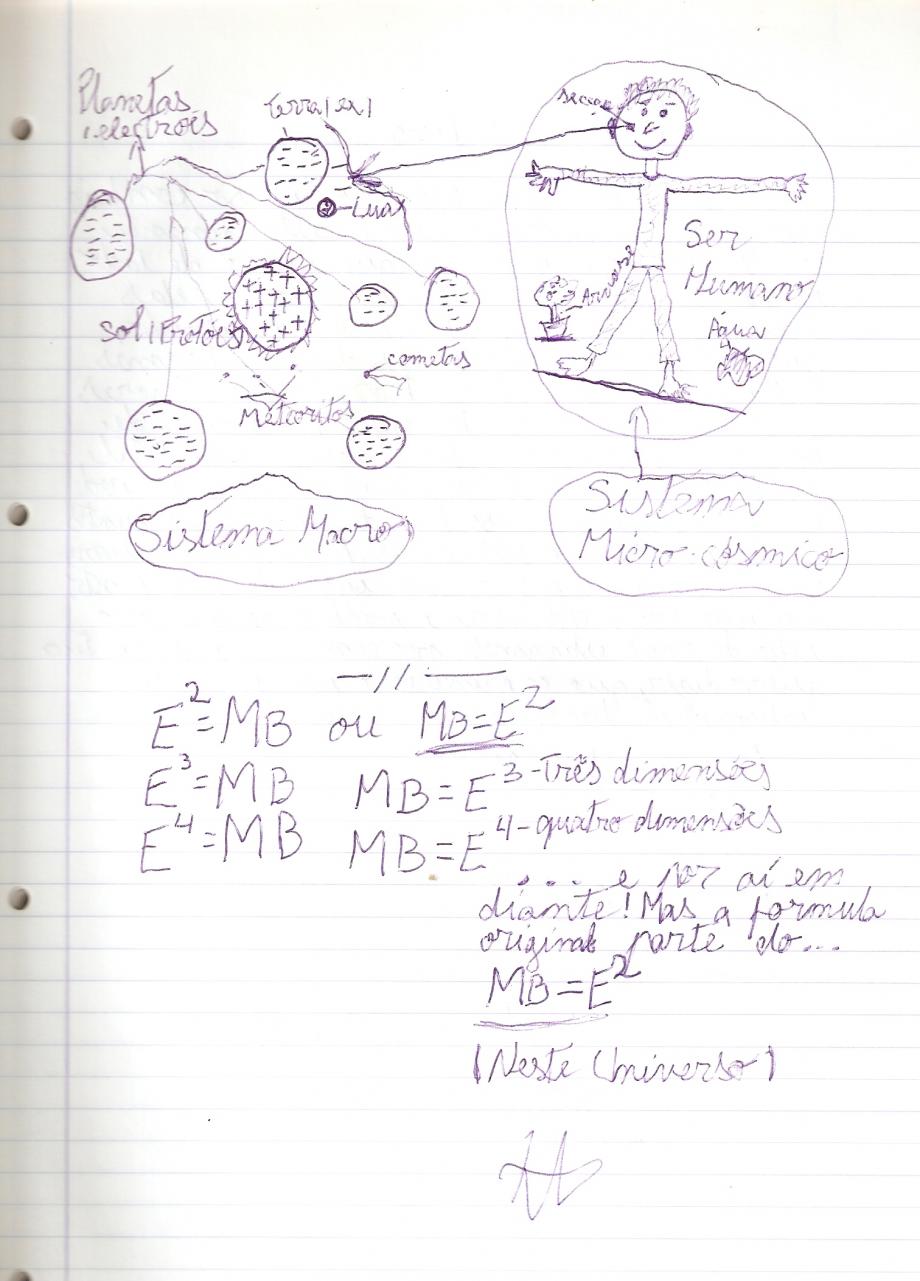 Planetas
electrões
Terra
Lua
Sol | Protões
cometas
Meteoritos
Ser
Humano
Água
Sistema Macro
Sistema
Micro-cósmico
—//——
E²=MB ou MB=E²
E³=MB MB=E³-Três dimensões
E⁴=MB MB=E⁴-quatro dimensões
.... e por aí em
diante! Mas a formula
original parte do...
MB=E²
(Neste Universo)